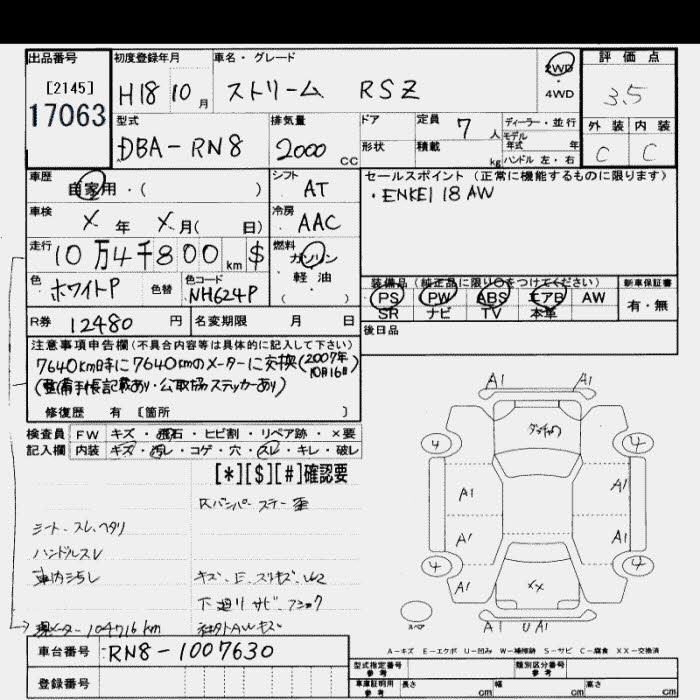 出品番号
[2145]
17063
初度登録年月
H18 10月
車名・グレード
ストリーム RSZ
2WD
・
4WD
評価点
3.5
外装 内装
C C
型式
DBA-RN8
排気量
2000 CC
ドア
形状
定員 7 人
積載 kg
ディーラー・並行
モデル
年式 年
ハンドル 左・右
車歴
自家用・( )
シフト
AT
セールスポイント (正常に機能するものに限ります)
・ENKEI 18 AW
車検
X年 X月( 日)
冷房
AAC
走行
10万4千800km $
燃料
ガソリン
軽油
( )
色
ホワイトP
色替
色コード
NH624P
装備品(純正品に限り○をつけてください)
PS PW ABS エアB AW
SR ナビ TV 本革
新車保証書
有・無
R券 12480円
名変期限 月 日
後日品
注意事項申告欄(不具合内容等は具体的に記入して下さい)
7640km時に7640kmのメーターに交換(2007年10月16日)
(整備手帳記載あり・公取協ステッカーあり)
修復歴 有 [箇所 ]
検査員 FW キズ・飛石・ヒビ割・リペア跡・×要
記入欄 内装 キズ・汚レ・コゲ・穴・スレ・キレ・破レ
[*][$][#]確認要
Rバンパーステー歪
シート、スレ、ヘタリ
ハンドルスレ
車内汚れ
キズ、E、スリキズ、
下廻りサビ、
→現メーター104716km
社外AWキズ
A1 A1
4 4
A1 A1
A1 A1
4 4
A1 A1
XX
A1 U A1
スペア
A-キズ E-エクボ U-凹み W-補修跡 S-サビ C-腐食 XX-交換済
車台番号 RN8-1007630
登録番号
型式指定番号
参考
類別区分番号
参考
車庫証明用
参考
長さ cm 幅 cm 高さ cm